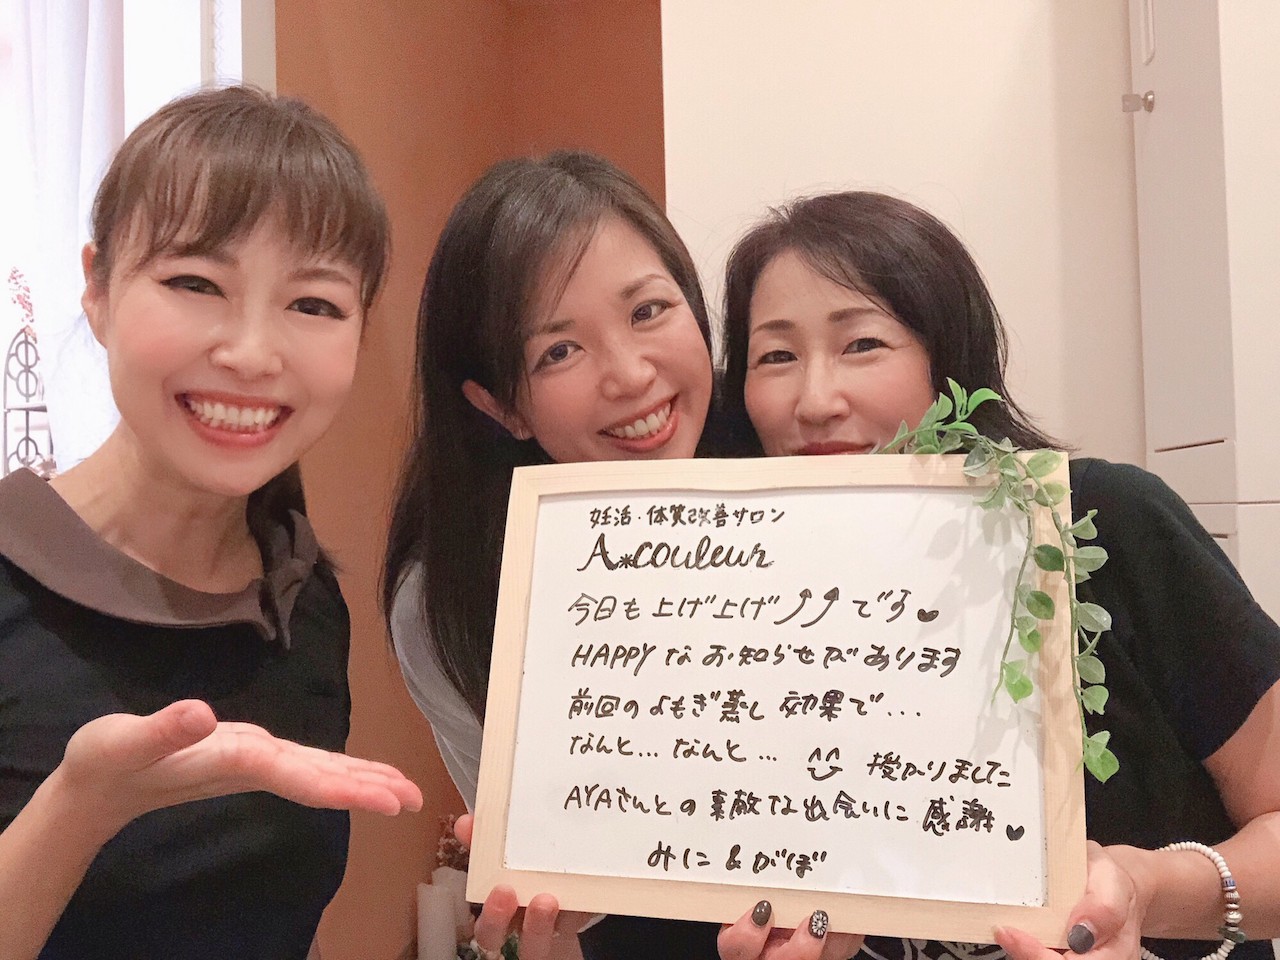 妊活・体質改善サロン
A*couleur
今日も上げ上げ⤴⤴です♥
HAPPYなお知らせがあります
前回のよもぎ蒸し効果で...
なんと...なんと... 授かりました
AYAさんとの素敵な出会いに感謝♥
みに&がぼ